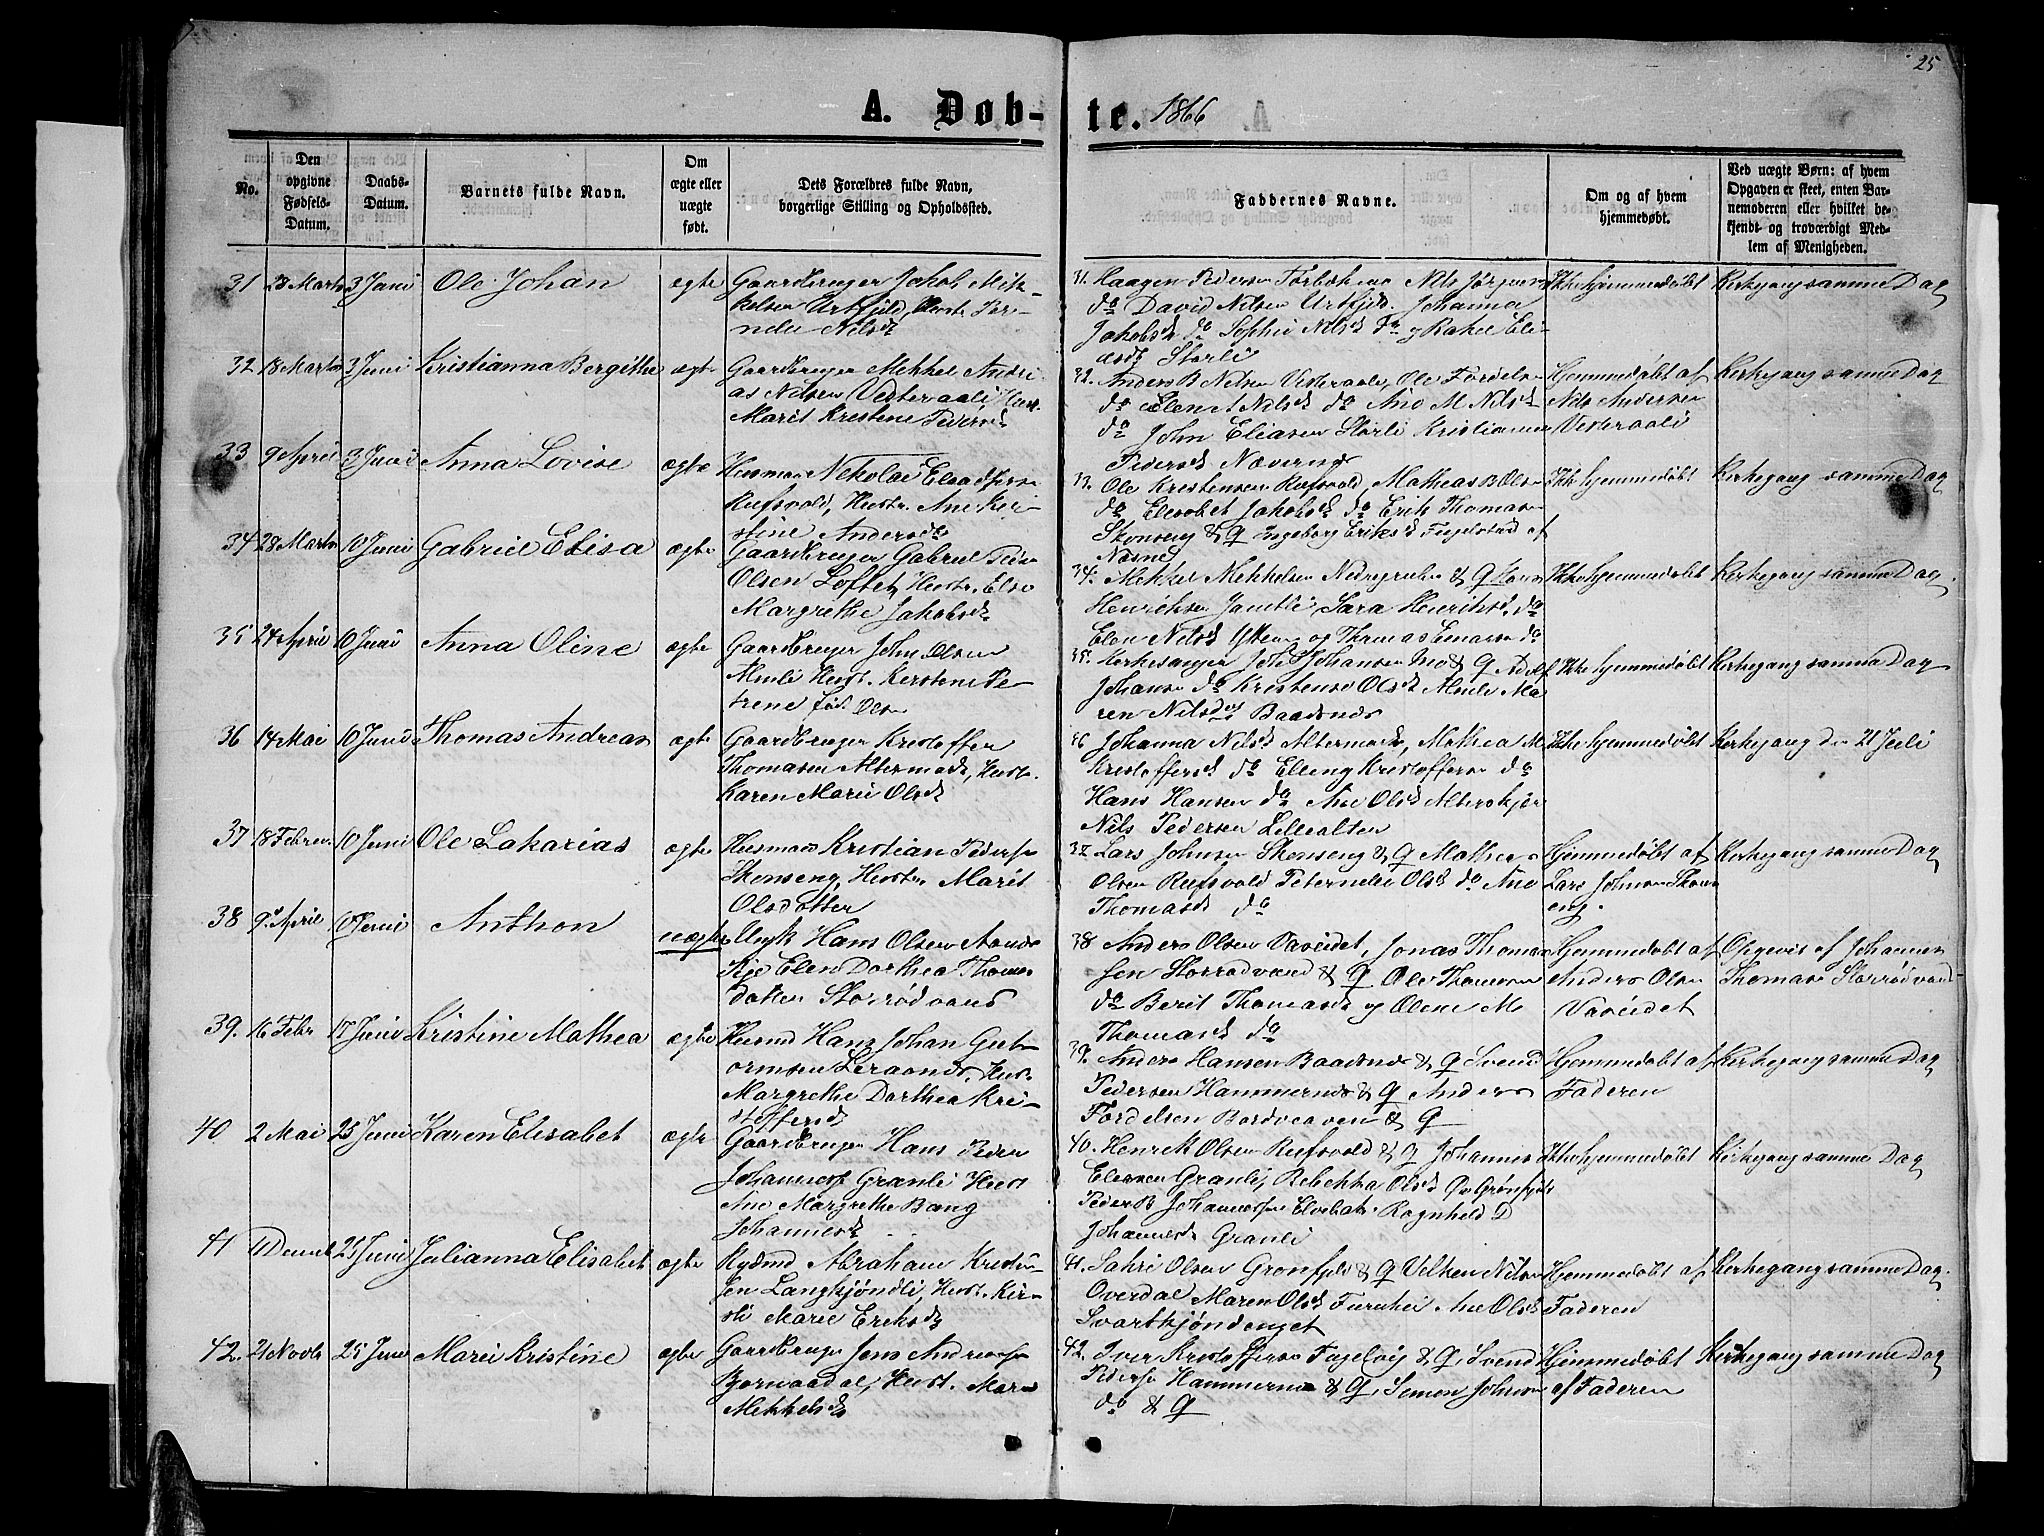 25
A. Døb-te. 1866
No.
Den opgivne Fødsels-Datum.
Daabs-Datum.
Barnets fulde Navn.
Om ægte eller uægte født.
Dets Forældres fulde Navn, borgerlige Stilling og Opholdssted.
Faddernes Navne.
Om og af hvem hjemmedøbt.
Ved uægte Børn: af hvem Opgaven er skeet, enten Barnemoderen eller hvilket bekjendt og troværdigt Medlem af Menigheden.
31 23 Marts 3 Juni Ole Johan egte Gaardbruger Jakob Mik-
kelsen Urtfjeld, Hustr.
Nilsd
31. Haagen Pedersen Nils Jørgensen
do David Nilsen Urtfjeld, Johanna
Jakobsd do Sophie Nilsd do og Rakel Eli-
asd Storli
Ikke hjemmedøbt Kirkegang samme Dag
32 18 Marts 3 Juni Kristianna Bergithe ægte Gaardbruger Mekkel Andre-
as Nilsen Vesteraali Hust.
Marit Kristine Pedersd
32. Anders B Nilsen Vesteraali, Ole Fordelsen
do Elen A Nilsd do Ane M Nilsd
do John Eliasen Storli Kristianna
Pedersd Nævernes
Hjemmedøbt af
Nils Andersen
Vesteraali
Kirkegang samme Dag
33 9 April 3 Juni Anna Lovise ægte Husman Nekolai
Rufsvold, Hustr. Ane Kri-
stine Andersd
33. Ole Kristensen Rufsvold, Mathias B Olsen
do Elesabet Jakobsd do Erik Thomasen
Skonseng & Q Ingeborg Eriksd af
Næsne
Ikke hjemmedøbt Kirkegang samme Dag
34 28 Marts 10 Juni Gabriel Elisa ægte Gaardbruger Gabriel Peder
Olsen Loftet, Hustr. Else
Margrethe Jakobsd
34. Mekkel Mekkelsen & Q Hans
Henriksen Jamtli, Sara Henriksd do
Elen Nilsd og Thomas do
Ikke hjemmedøbt Kirkegang samme Dag
35 24 April 10 Juni Anna Oline ægte Gaardbruger John Olsen
Hust. Kerstine Pe-
trene født Olsen
35. Kirkesanger Johs Johansen Mo & Q Adolf
Johansen do Kristense Olsd Ma-
ren Nilsd Baadsnes
Ikke hjemmedøbt Kirkegang samme Dag
36 14 Mai 10 Juni Thomas Andreas ægte Gaardbruger Kristoffer
Thomasen Altermark, Hustr.
Karen Marie Olsd
36 Johanna Nilsd Altermark, Mathea M
Kristoffersd do Elling Kristoffersen do
Hans Hansen do Ane Olsd
Nils Pedersen Lillealteren
Ikke hjemmedøbt Kirkegang den 21 Juli
37 18 Februar 10 Juni Ole Lakarias ægte Husmand Kristian Pedersen
Skonseng, Hustr. Marit
Olsdatter
37 Lars Johnsen Skonseng & Q Mathias
Olsen Rufsvold Peternelei Olsd do Ane
Thomasd do
Hjemmedøbt af
Lars Johnsen Skons-
eng.
Kirkegang samme Dag
38 9 April 10 Juni Anthon uægte Ungk Hans Olsen
Pige Elen Dorthea Thomas-
datter Storrødvand
38 Anders Olsen Vaveidet, Jonas Thomas-
sen Storrødvand & Q Ole Thomassen
do Berit Thomasd og Olene M.
Thomasd do
Hjemmedøbt af
Anders Olsen
Vaveidet
Opgevet af Johannes
Thomasen Storrødvand
39. 16 Febr 17 Juni Kristine Mathea ægte Husmd Hans Johan Gut-
ormsen Leraand, Hust.
Margrethe Dorthea Kri-
stoffersd
39. Anders Hansen Baadsnes & Q Svend
Pedersen Hammernes & Q Anders
Fordelsen & Q
Hjemmedøbt af
Faderen
Kirkegang samme Dag
40 2 Mai 25 Juni Karen Elisabet ægte Gaardbruger Hans Peder
Johannesen Granli Hustr
Ane Margrethe Bang
Johannesd
40. Henrik Olsen Rufsvold & Q Johannes
Eliasen Granli, Rebekka Olsd Grønfjeld
Peder B Johannessen Ragnheld D
Johannesd Granli
Ikke hjemmedøbt Kirkegang samme Dag
41 11 Decemb 25 Juni Julianna Elisabet ægte Rydmd Abraham Kristen-
sen Langkjøndli, Hust. Kir-
sti Marie Eriksd
41. Sahri Olsen Grønfjeld & Q Velken Nilsen
Overdal Maren Olsd Furuhei Ane Olsd
Svartkjøndenget
Hjemmedøbt af
Faderen
Kirkegang samme Dag.
42. 21 Novbr 25 Juni Marie Kristine ægte Gaardbruger Jens Andreassen
Bjørnaadal, Hust. Maren
Mekkelsd
42. Iver Kristoffersen & Q, Svend
Pedersen Hammernes & Q, Simon Johnsen
do & Q
Hjemmedøbt
af Faderen
Kirkegang samme Dag